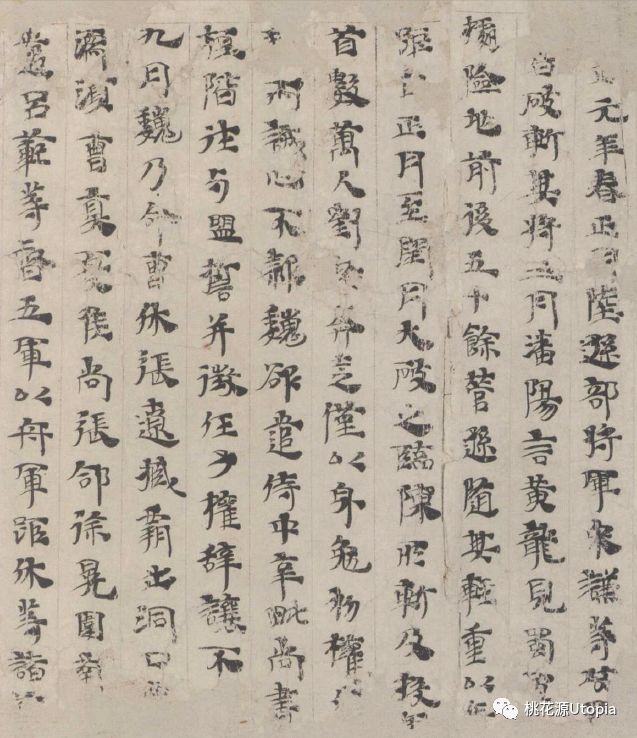 元年春正月陸遜部將軍宋謙等攻
皆破斬其將三月潘陽言黃龍見蜀軍
據險地前後五十餘營遜隨其輕重以兵
距自正月至閏月大破之臨陳所斬及投兵
首數萬人劉備奔走僅以身免初權外
而誠心不款魏欲遣侍中辛毗尚書
桓階往与盟誓并徵任子權辭讓不
九月魏乃命曹休張遼臧霸出洞口曹
濡須曹真夏侯尚張郃徐晃圍南
遣呂範等督五軍以舟軍距休等諸
桃花源Utopia